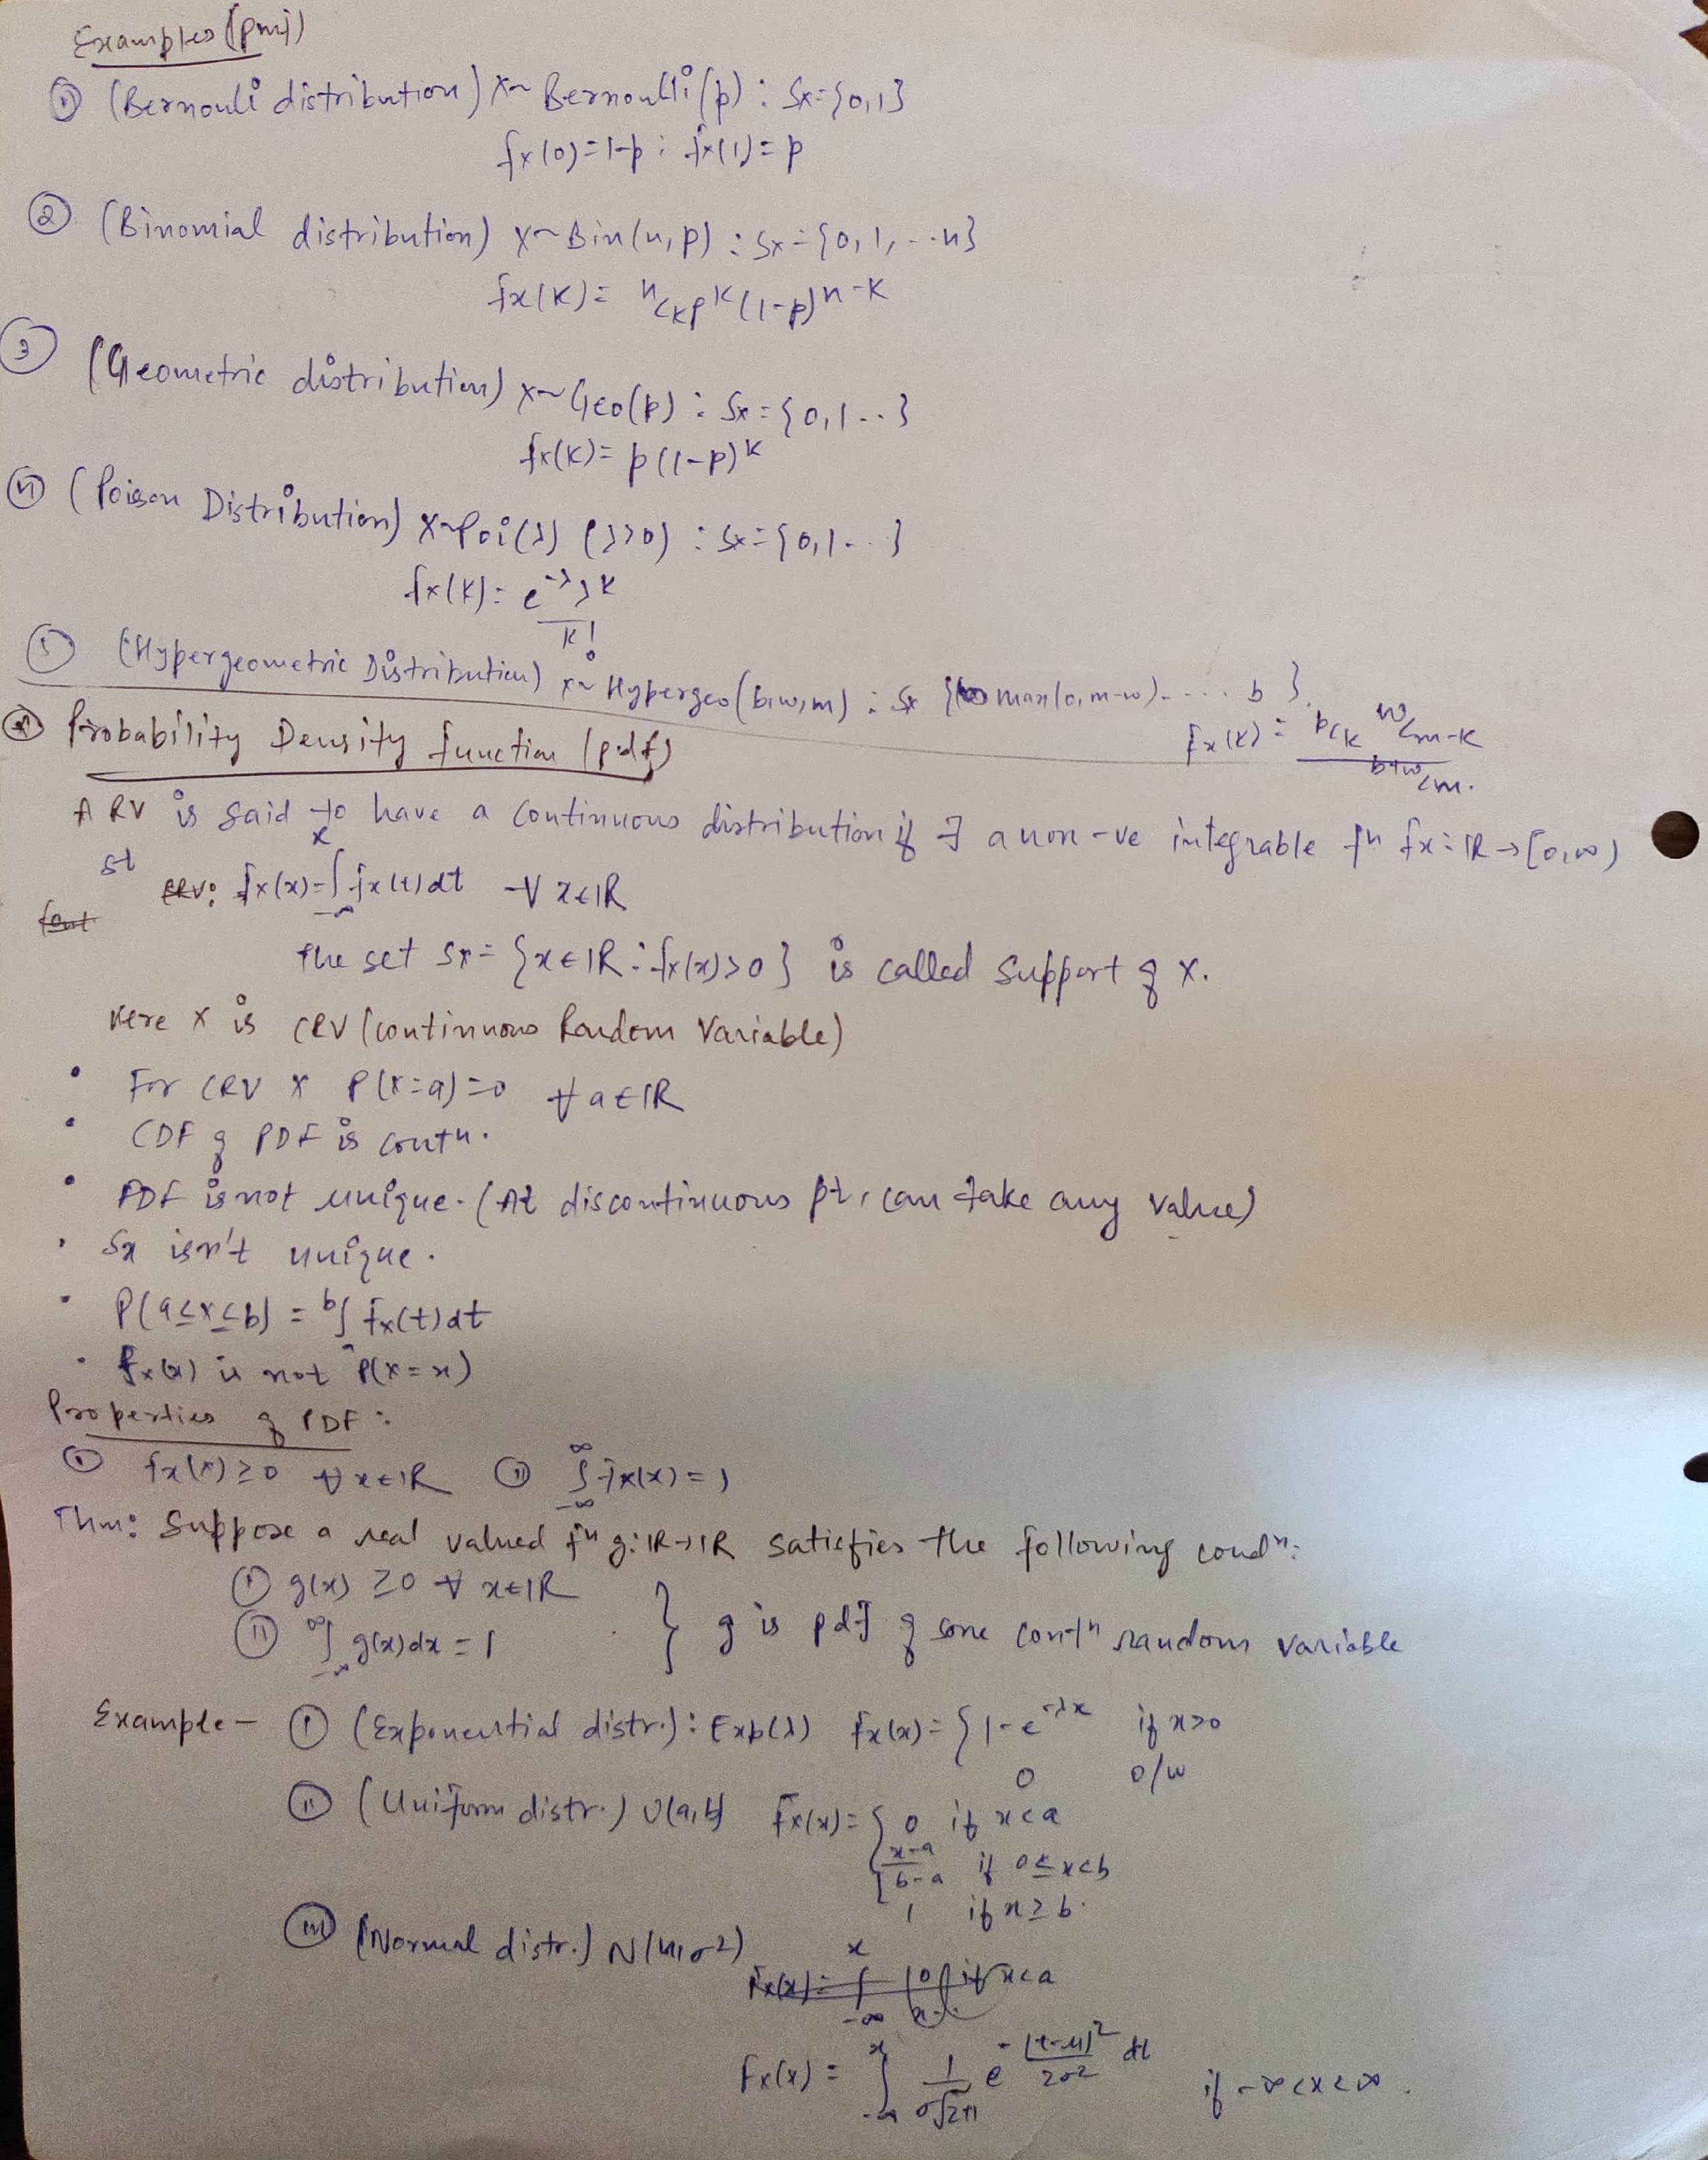 Examples (pmf)
① (Bernouli distribution) X~ Bernoulli (p) : Sx={0,1}
fx(0)=1-p ; fx(1)=p
② (Binomial distribution) X~Bin(n,p) : Sx={0,1,...n}
fx(K)= ⁿC_K p^K (1-p)^n-K
③ (Geometric distribution) X~Geo(p) : Sx={0,1...}
fx(K)= p(1-p)^K
④ (Poison Distribution) X~Poi(λ) (λ>0) : Sx={0,1...}
fx(K)= e^-λ λ^K / K!
⑤ (Hypergeometric Distribution) X~ Hypergeo(b,w,m) : Sx {max(0,m-w).....b}
fx(K)= ᵇC_K ʷC_m-K / ᵇ⁺ʷC_m.
Probability Density function (pdf)
A RV X is said to have a continuous distribution if ∃ a non-ve integrable fn fx: IR→[0,∞)
st Fx(x)=∫_-∞^x fx(t)dt ∀ x∈IR
The set Sx= {x∈IR: fx(x)>0} is called support of X.
Here X is CRV (Continuous Random Variable)
• For CRV X P(X=a)=0 ∀ a∈IR
• CDF of PDF is contn.
• PDF is not unique. (At discontinuous pt, can take any value)
• Sx isn't unique.
• P(a≤X≤b) = ∫_a^b fx(t)dt
• fx(x) is not P(X=x)
Properties of PDF:
① fx(x)≥0 ∀ x∈IR ② ∫_-∞^∞ fx(x)=1
Thm: Suppose a real valued fn g: IR→IR satisfies the following condn:
① g(x) ≥0 ∀ x∈IR
② ∫_-∞^∞ g(x)dx = 1 } g is pdf of some contn random variable
Example- ① (Exponential distr.): Exp(λ) Fx(x)= { 1-e^-λx if x>0
0 o/w
② (Uniform distr.) U(a,b) Fx(x)= { 0 if x<a
x-a / b-a if a≤x<b
1 if x≥b.
③ (Normal distr.) N(μ,σ²)
Fx(x) = ∫_-∞^x 1/σ√2π e^-(t-μ)²/2σ² dt if -∞<x<∞.